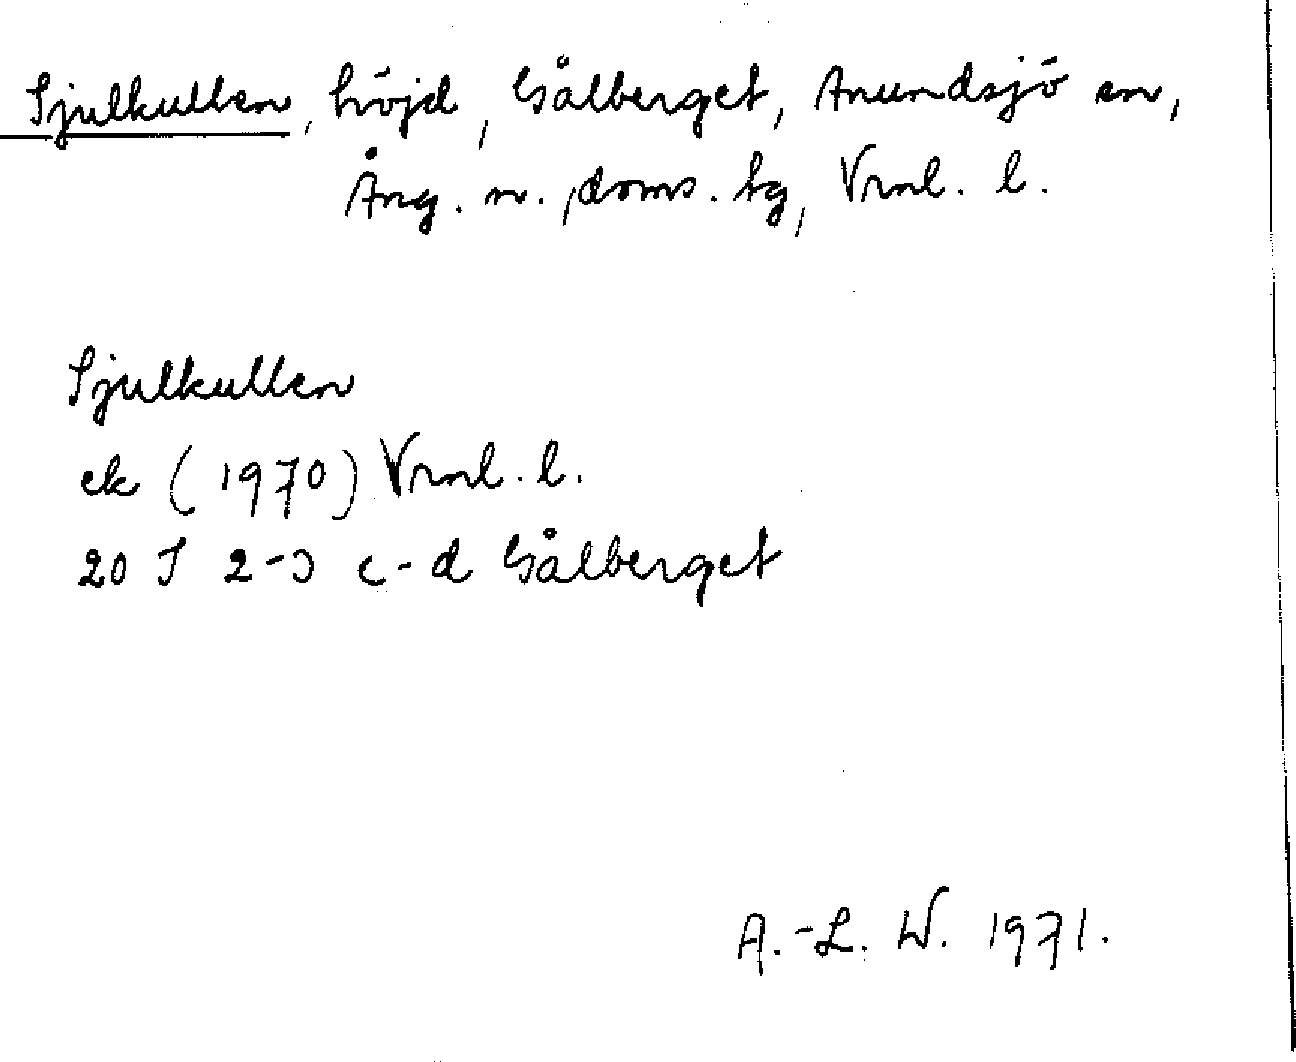 Sjulkullen, höjd, Gålberget, Anundsjö sn,
Ång. n. doms. tg, Vrnl. l.
Sjulkullen
ek (1970) Vrnl. l.
20 I 2-3 c-d Gålberget
A.-L. W. 1971.